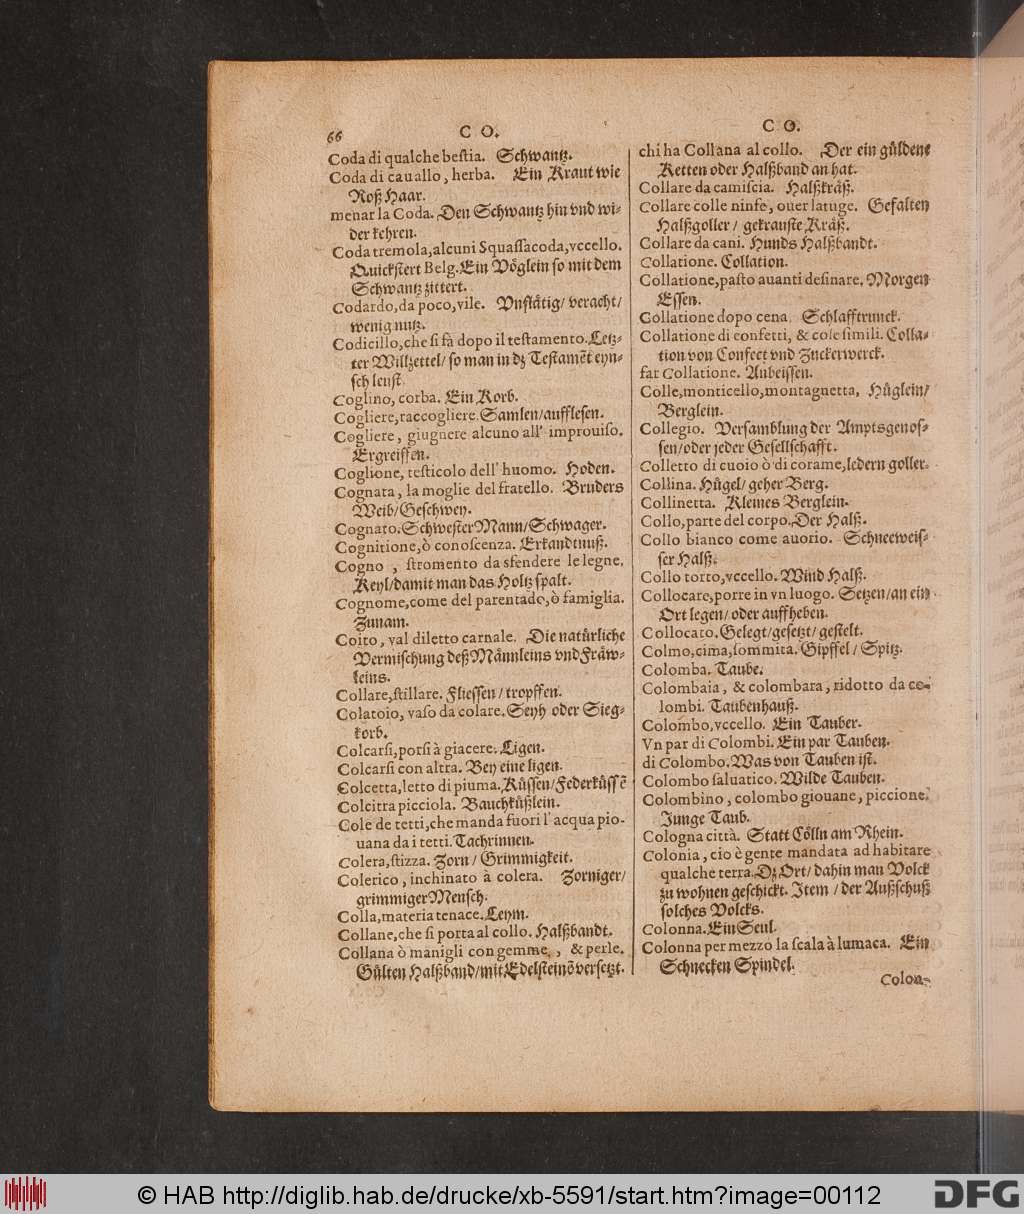 66
C O.
Coda di qualche beſtia. Schwantz.
Coda di cauallo, herba. Ein Kraut wie
Roß Haar.
menar la Coda. Den Schwantz hin vnd wi-
der kehren.
Coda tremola, alcuni Squaſſacoda, vccello.
Quickſtert Belg. Ein Vöglein ſo mit dem
Schwantz zittert.
Codardo, da poco, vile. Vnflätig/ veracht/
wenig nutz.
Codicillo, che ſi fà dopo il teſtamento. Letz-
ter Willzettel/ ſo man in dz Teſtamēt eyn-
ſchleuſt.
Coglino, corba. Ein Korb.
Cogliere, raccogliere. Samlen/aufflesen.
Cogliere, giugnere alcuno all' improuiſo.
Ergreiffen.
Coglione, teſticolo dell' huomo. Hoden.
Cognata, la moglie del fratello. Bruders
Weib/Geſchwey.
Cognato. Schweſter Mann/Schwager.
Cognitione, ò conoſcenza. Erkandtnuß.
Cogno, ſtromento da sfendere le legne.
Keyl/damit man das Holtz ſpalt.
Cognome, come del parentado, ò famiglia.
Zunam.
Coito, val diletto carnale. Die natürliche
Vermiſchung deß Männleins vnd Fräw-
leins.
Collare, ſtillare. Flieſſen / tropffen.
Colatoio, vaſo da colare. Seyh oder Sieg-
korb.
Colcarſi, porſi à giacere. Ligen.
Colcarſi con altra. Bey eine ligen.
Colcetta, letto di piuma. Küſſen/Federküſſē
Colcitra picciola. Bauchküßlein.
Cole de tetti, che manda fuori l' acqua pio-
uana da i tetti. Tachrinnen.
Colera, ſtizza. Zorn / Grimmigkeit.
Colerico, inchinato à colera. Zorniger/
grimmiger Menſch.
Colla, materia tenace. Leym.
Collane, che ſi porta al collo. Halßbandt.
Collana ò manigli con gemme, & perle.
Gülten Halßband/mit Edelſteinē verſetzt.
C O.
chi ha Collana al collo. Der ein güldene
Ketten oder Halßband an hat.
Collare da camiſcia. Halßkräß.
Collare colle ninfe, ouer latuge. Gefalten
Halßgoller / gekrauſte Kräß.
Collare da cani. Hunds Halßbandt.
Collatione. Collation.
Collatione, paſto auanti deſinare. Morgen
Eſſen.
Collatione dopo cena. Schlafftrunck.
Collatione di confetti, & coſe ſimili. Colla-
tion von Confect vnd Zuckerwerck.
far Collatione. Anbeiſſen.
Colle, monticello, montagnetta, Hüglein/
Berglein.
Collegio. Verſamblung der Amptsgenoſ-
ſen/oder jeder Geſellſchafft.
Colletto di cuoio ò di corame, ledern goller.
Collina. Hügel/ geher Berg.
Collinetta. Kleines Berglein.
Collo, parte del corpo. Der Halß.
Collo bianco come auorio. Schneeweiſ-
ſer Halß.
Collo torto, vccello. Wind Halß.
Collocare, porre in vn luogo. Setzen/an ein
Ort legen/ oder auffheben.
Collocato. Gelegt/geſetzt/ geſtelt.
Colmo, cima, ſommita. Gipffel / Spitz.
Colomba. Taube.
Colombaia, & colombara, ridotto da co-
lombi. Taubenhauß.
Colombo, vccello. Ein Tauber.
Vn par di Colombi. Ein par Tauben.
di Colombo. Was von Tauben iſt.
Colombo ſaluatico. Wilde Tauben.
Colombino, colombo giouane, piccione.
Junge Taub.
Cologna città. Statt Cölln am Rhein.
Colonia, cio è gente mandata ad habitare
qualche terra. Dz Ort/ dahin man Volck
zu wohnen geſchickt. Item / der Außſchuß
ſolches Volcks.
Colonna. Ein Seul.
Colonna per mezzo la ſcala à lumaca. Ein
Schnecken Spindel.
Colon-
© HAB http://diglib.hab.de/drucke/xb-5591/start.htm?image=00112
DFG